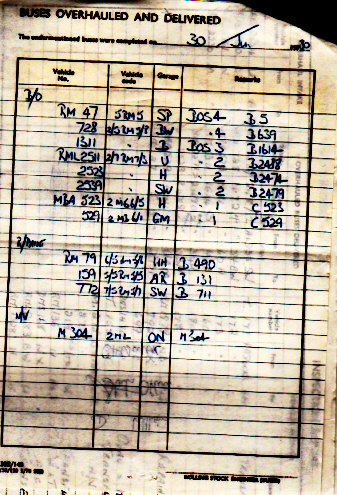 BUSES OVERHAULED AND DELIVERED
The undermentioned buses were completed on 30 / Jun 1980
Vehicle No. Vehicle code Garage Remarks
B/O
RM 47 5RM5 SP BOS4 B5
728 BW .4 B639
1311 B BOS3 B1614
RML2511 U . 2 B2488
2523 H . 2 B2474
2539 SW . 2 B2479
MBA 523 2MB6/5 H . 1 C523
529 2MB6/1 GM . 1 C529
RM 79 HH B 490
159 AR B 131
772 SW B 711
M/V
M 304 2ML ON M304
ROLLING STOCK ENGINEER (BUSES)